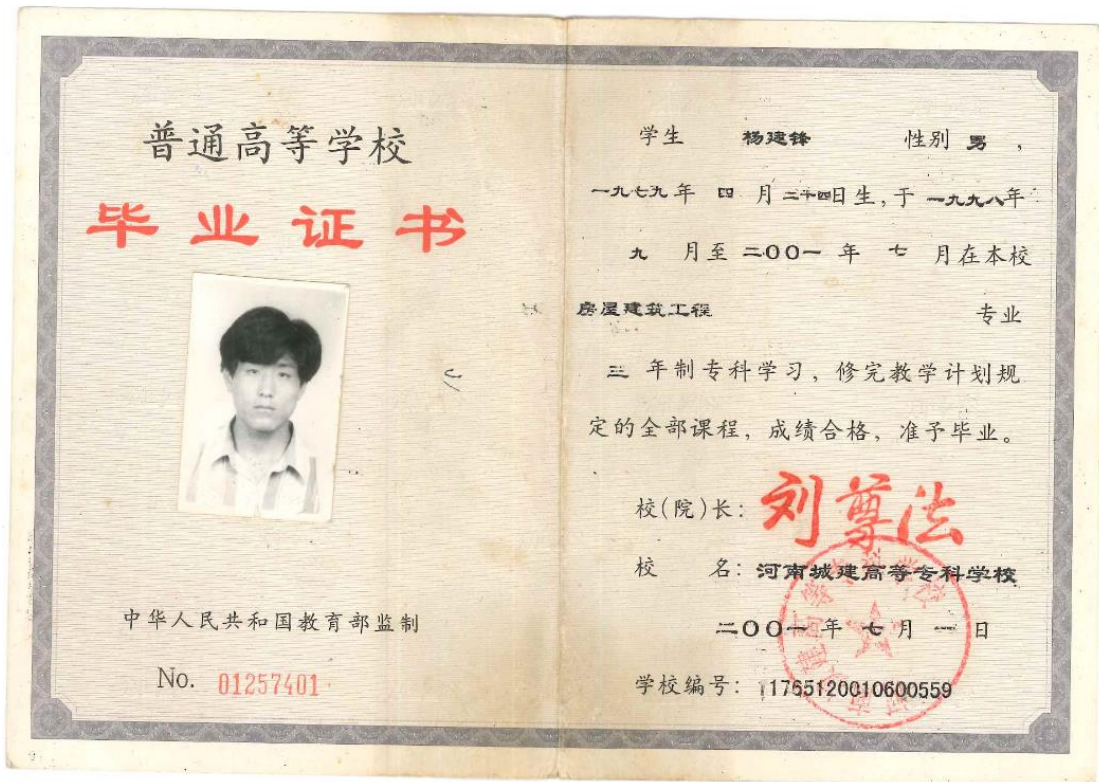 普通高等学校
毕业证书
中华人民共和国教育部监制
No. 01257401
学生 杨建锋 性别 男，
一九七九年 四 月 二十四日生，于 一九九八年
九 月至 二〇〇一 年 七 月在本校
房屋建筑工程 专业
三 年制专科学习，修完教学计划规
定的全部课程，成绩合格，准予毕业。
校(院)长：刘尊法
校 名：河南城建高等专科学校
二〇〇一年 七 月 一 日
学校编号：11765120010600559
河南城建高等专科学校